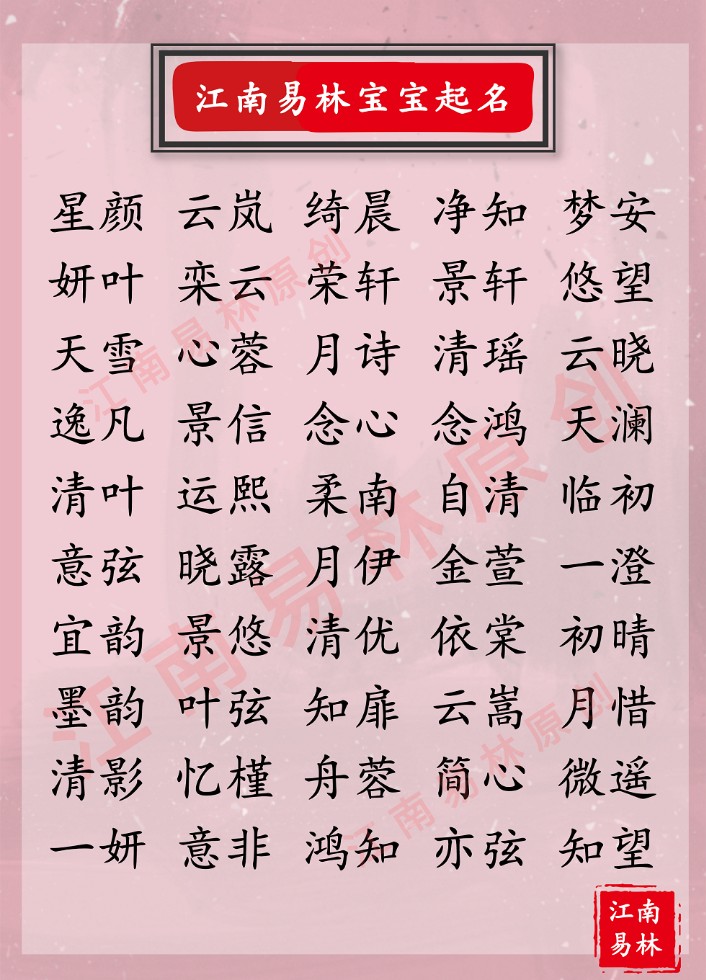 江南易林宝宝起名
星颜 云岚 绮晨 净知 梦安
妍叶 栾云 荣轩 景轩 悠望
天雪 心蓉 月诗 清瑶 云晓
逸凡 景信 念心 念鸿 天澜
清叶 运熙 柔南 自清 临初
意弦 晓露 月伊 金萱 一澄
宜韵 景悠 清优 依棠 初晴
墨韵 叶弦 知扉 云嵩 月惜
清影 忆槿 舟蓉 简心 微遥
一妍 意非 鸿知 亦弦 知望
江南易林原创
江南易林原创
江南易林原创
江南
易林